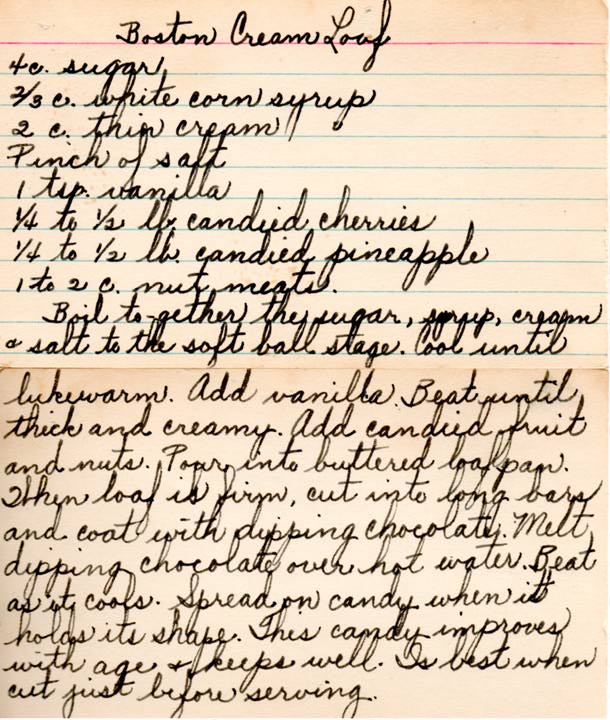 Boston Cream Loaf
4c. sugar
2/3 c. white corn syrup
2 c. thin cream
Pinch of salt
1 tsp. vanilla
1/4 to 1/2 lb. candied cherries
1/4 to 1/2 lb. candied pineapple
1 to 2 c. nut meats.
Boil to-gether the sugar, syrup, cream
& salt to the soft ball stage. Cool until
lukewarm. Add vanilla. Beat until
thick and creamy. Add candied fruit
and nuts. Pour into buttered loaf pan.
When loaf is firm, cut into long bars
and coat with dipping chocolate. Melt
dipping chocolate over hot water. Beat
as it cools. Spread on candy when it
holds its shape. This candy improves
with age & keeps well. Is best when
cut just before serving.